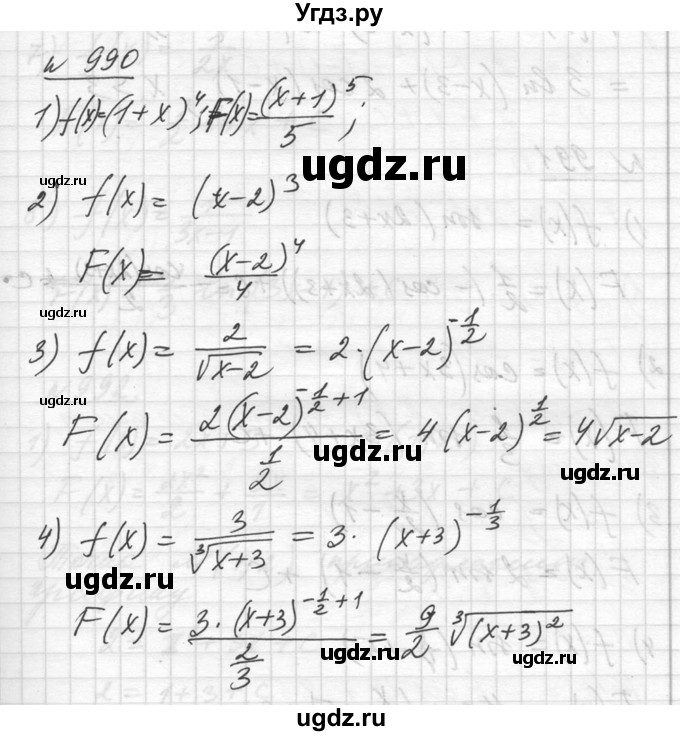 Угдз.ру
№ 990
1) f(x)=(1+x)^4; F(x)=(x+1)^5/5;
ugdz.ru
ugdz.ru
2) f(x)= (x-2)^3
F(x)= (x-2)^4/4
ugdz.ru
ugdz.ru
3) f(x)= 2/√(x-2) = 2·(x-2)^(-1/2)
ugdz.ru
F(x)= 2(x-2)^(-1/2+1)/(1/2) = 4(x-2)^(1/2) = 4√(x-2)
ugdz.ru
ugdz.ru
4) f(x)= 3/∛(x+3) = 3·(x+3)^(-1/3)
ugdz.ru
F(x)= 3·(x+3)^(-1/2+1)/(2/3) = 9/2 ∛((x+3)^2)
ugdz.ru
ugdz.ru
ugdz.ru